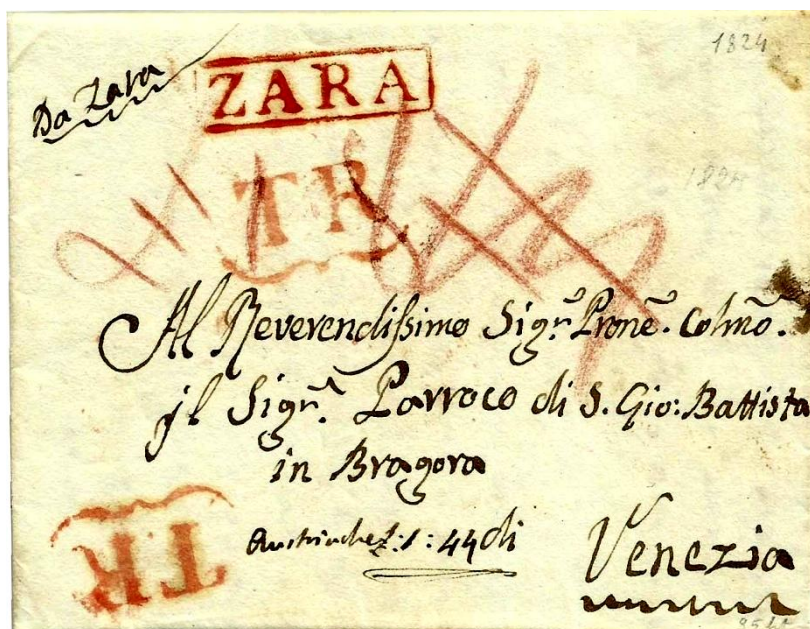 1824
Da Zara
ZARA
TR
1824
Al Reverendissimo Sigr. Prone. Colmo.
il Sigr. Parroco di S. Gio: Battista
in Bragora
TR
Austriache £:1:44 di
Venezia